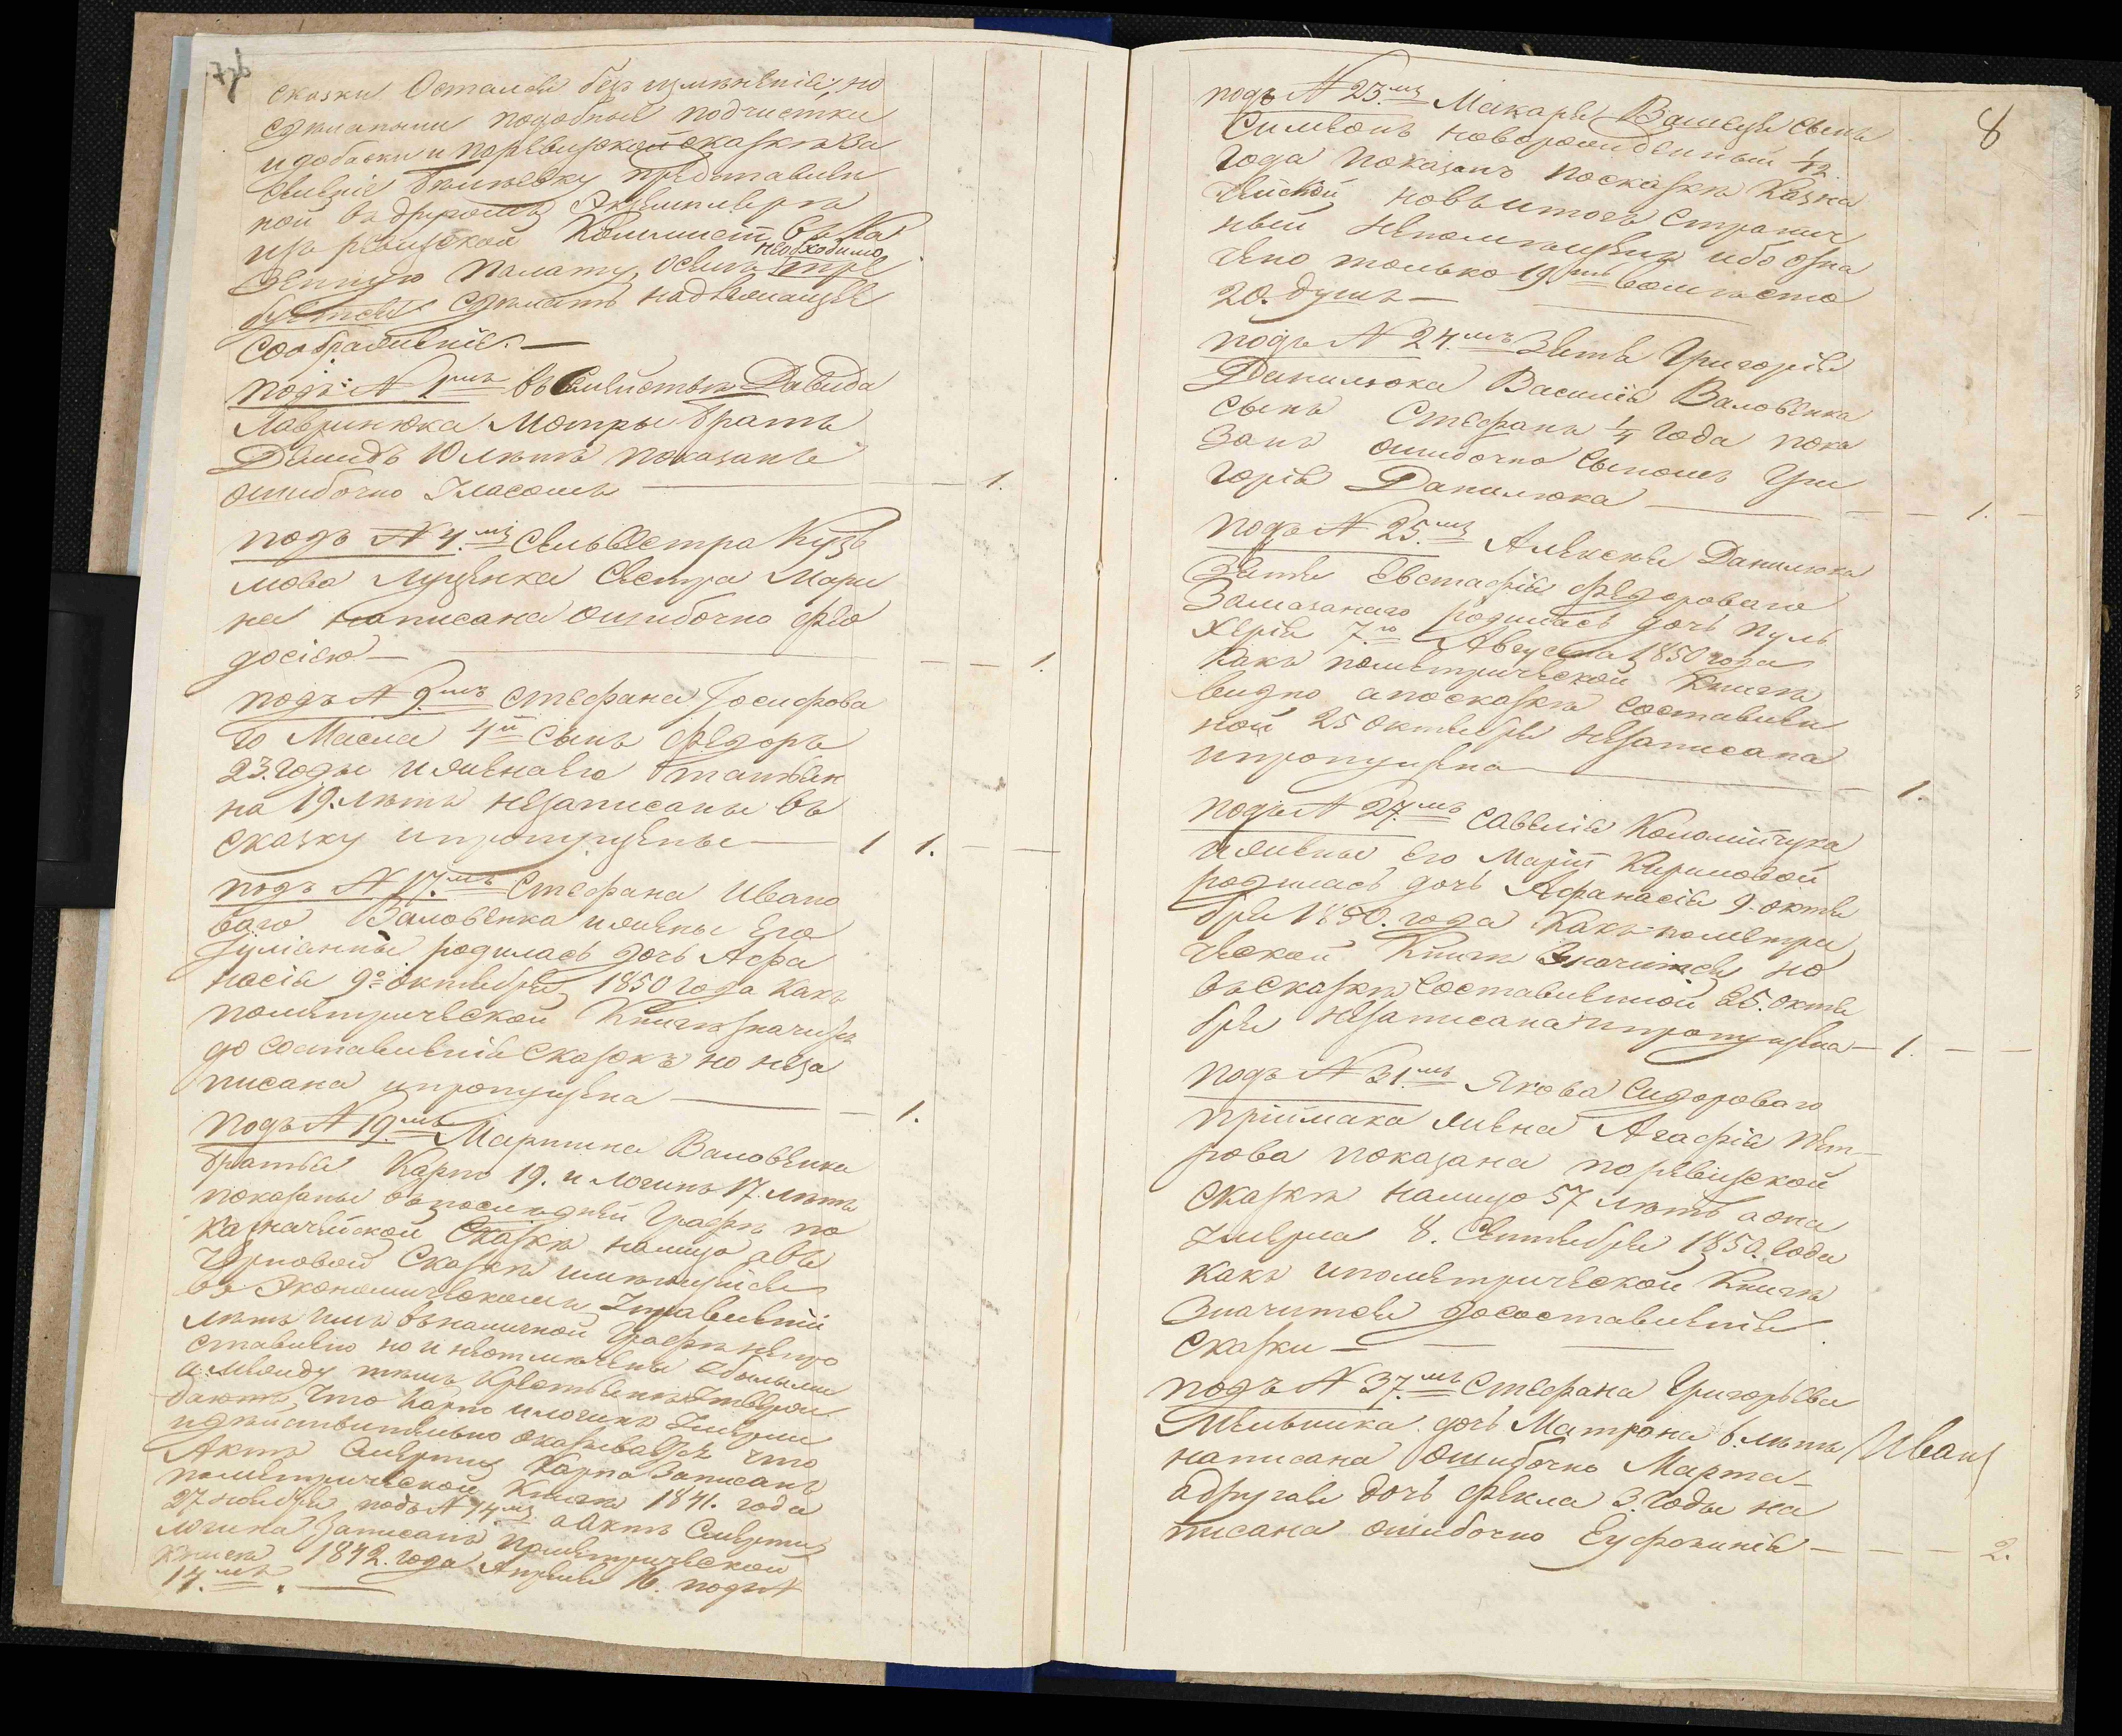 сказки Остался безъ измѣненія, но
сдѣланыи подобныя подчистки
и добавки и поревизской сказкѣ За
свищіе бѣлцевку представлен
ной въ другомъ Экземплярѣ
изъ ревизской Коммисіи въ Ка
зенную Палату, о семъ необходимо тре
буется сдѣлать надлежащее
соображеніе. —
подъ № 1мъ въ семействѣ Давида
Лавринюка Мотры братъ
Демидъ 10 лѣтъ показанъ
ошибочно Уласомъ — 1.
подъ № 4.мъ Сельвестра Кузь
мова Луценка сестра Мари
на написана ошибочно Фео
досіею — 1.
подъ № 9мъ Стефана Іосифова
го Масла 4й сынъ Федоръ
23. годы и жена его Татьян
на 19. лѣтъ незаписаны въ
сказку и пропущены — 1 1. — —
подъ № 17.мъ Стефана Ивано
ваго Валовенка и жены его
Іуліанны родилась дочь Афа
насія 9го октября 1850 года какъ
пометрической Книгѣ значится
до составленія сказокъ но неза
писана и пропущена — 1.
подъ № 19.мъ Мартина Валовенка
братья Карпо 19. и Логинъ 17. лѣтъ
показаны въ последней графѣ по
казначейской Сказкѣ налицо а въ
Черновой Сказкѣ имѣющейся
въ Экономическомъ Управленіи
лѣтъ имъ въ наличной Графѣ непо
ставлено но и неотмѣчены абылыми
а между тѣмъ Крестьяне утверж
даютъ, что Карпо и Логинъ Умерли
и дѣйствительно оказывается что
Актъ Смерти Карпа Записанъ
пометрической Книгѣ 1841. года
27 ноября подъ № 14.мъ а Актъ Смерти
Логина Записанъ пометрической
Книгѣ 1842. года Апреля 16. подъ №
17.мъ. —
8
подъ № 23.мъ Макарія Ващеця сынъ
Симеонъ новорожденный 1/12.
года показанъ посказкѣ Казна
чейской новъ итогъ Странич
ный непомѣщенъ ибо озна
чено только 19ть вомѣсто
20. душъ —
подъ № 24.мъ Зятя Григорія
Данилюка Василія Валовенка
сынъ Стефанъ 1/4 года пока
занъ ошибочно сыномъ Гри
горія Данилюка — 1. —
подъ № 25.мъ Алексѣя Данилюка
Зятя Евстафія Федороваго
Замазанаго родилась дочь Пуль
херія 7.го Августа 1850 года
какъ пометрической Книгѣ
видно апосказкѣ составлен
ной 25 октября незаписана
и пропущена — 1.
подъ № 27.мъ Савелія Коломійчука
и жены его Маріи Кириловой
родилась дочь Афанасія 9. октя
бря 1850. года Какъ пометри
ческой Книгѣ Значится но
въ сказкѣ составленной 25. октя
бря незаписана и пропущена — 1. — —
подъ № 31.мъ Якова Сидороваго
Приймака жена Агафія Пет-
рова показана поревизской
сказкѣ налицо 57 лѣтъ а она
Умерла 8. Сентября 1850. года
какъ ипометрической Книгѣ
Значится досоставленія
сказки —
подъ № 37.мъ Стефана Григорьева
Мельника дочь Матрона 6. лѣтъ / Иван
написана ошибочно Марта
адругая дочь Фекла 3. годы на
писана ошибочно Еуфросинія — 2.